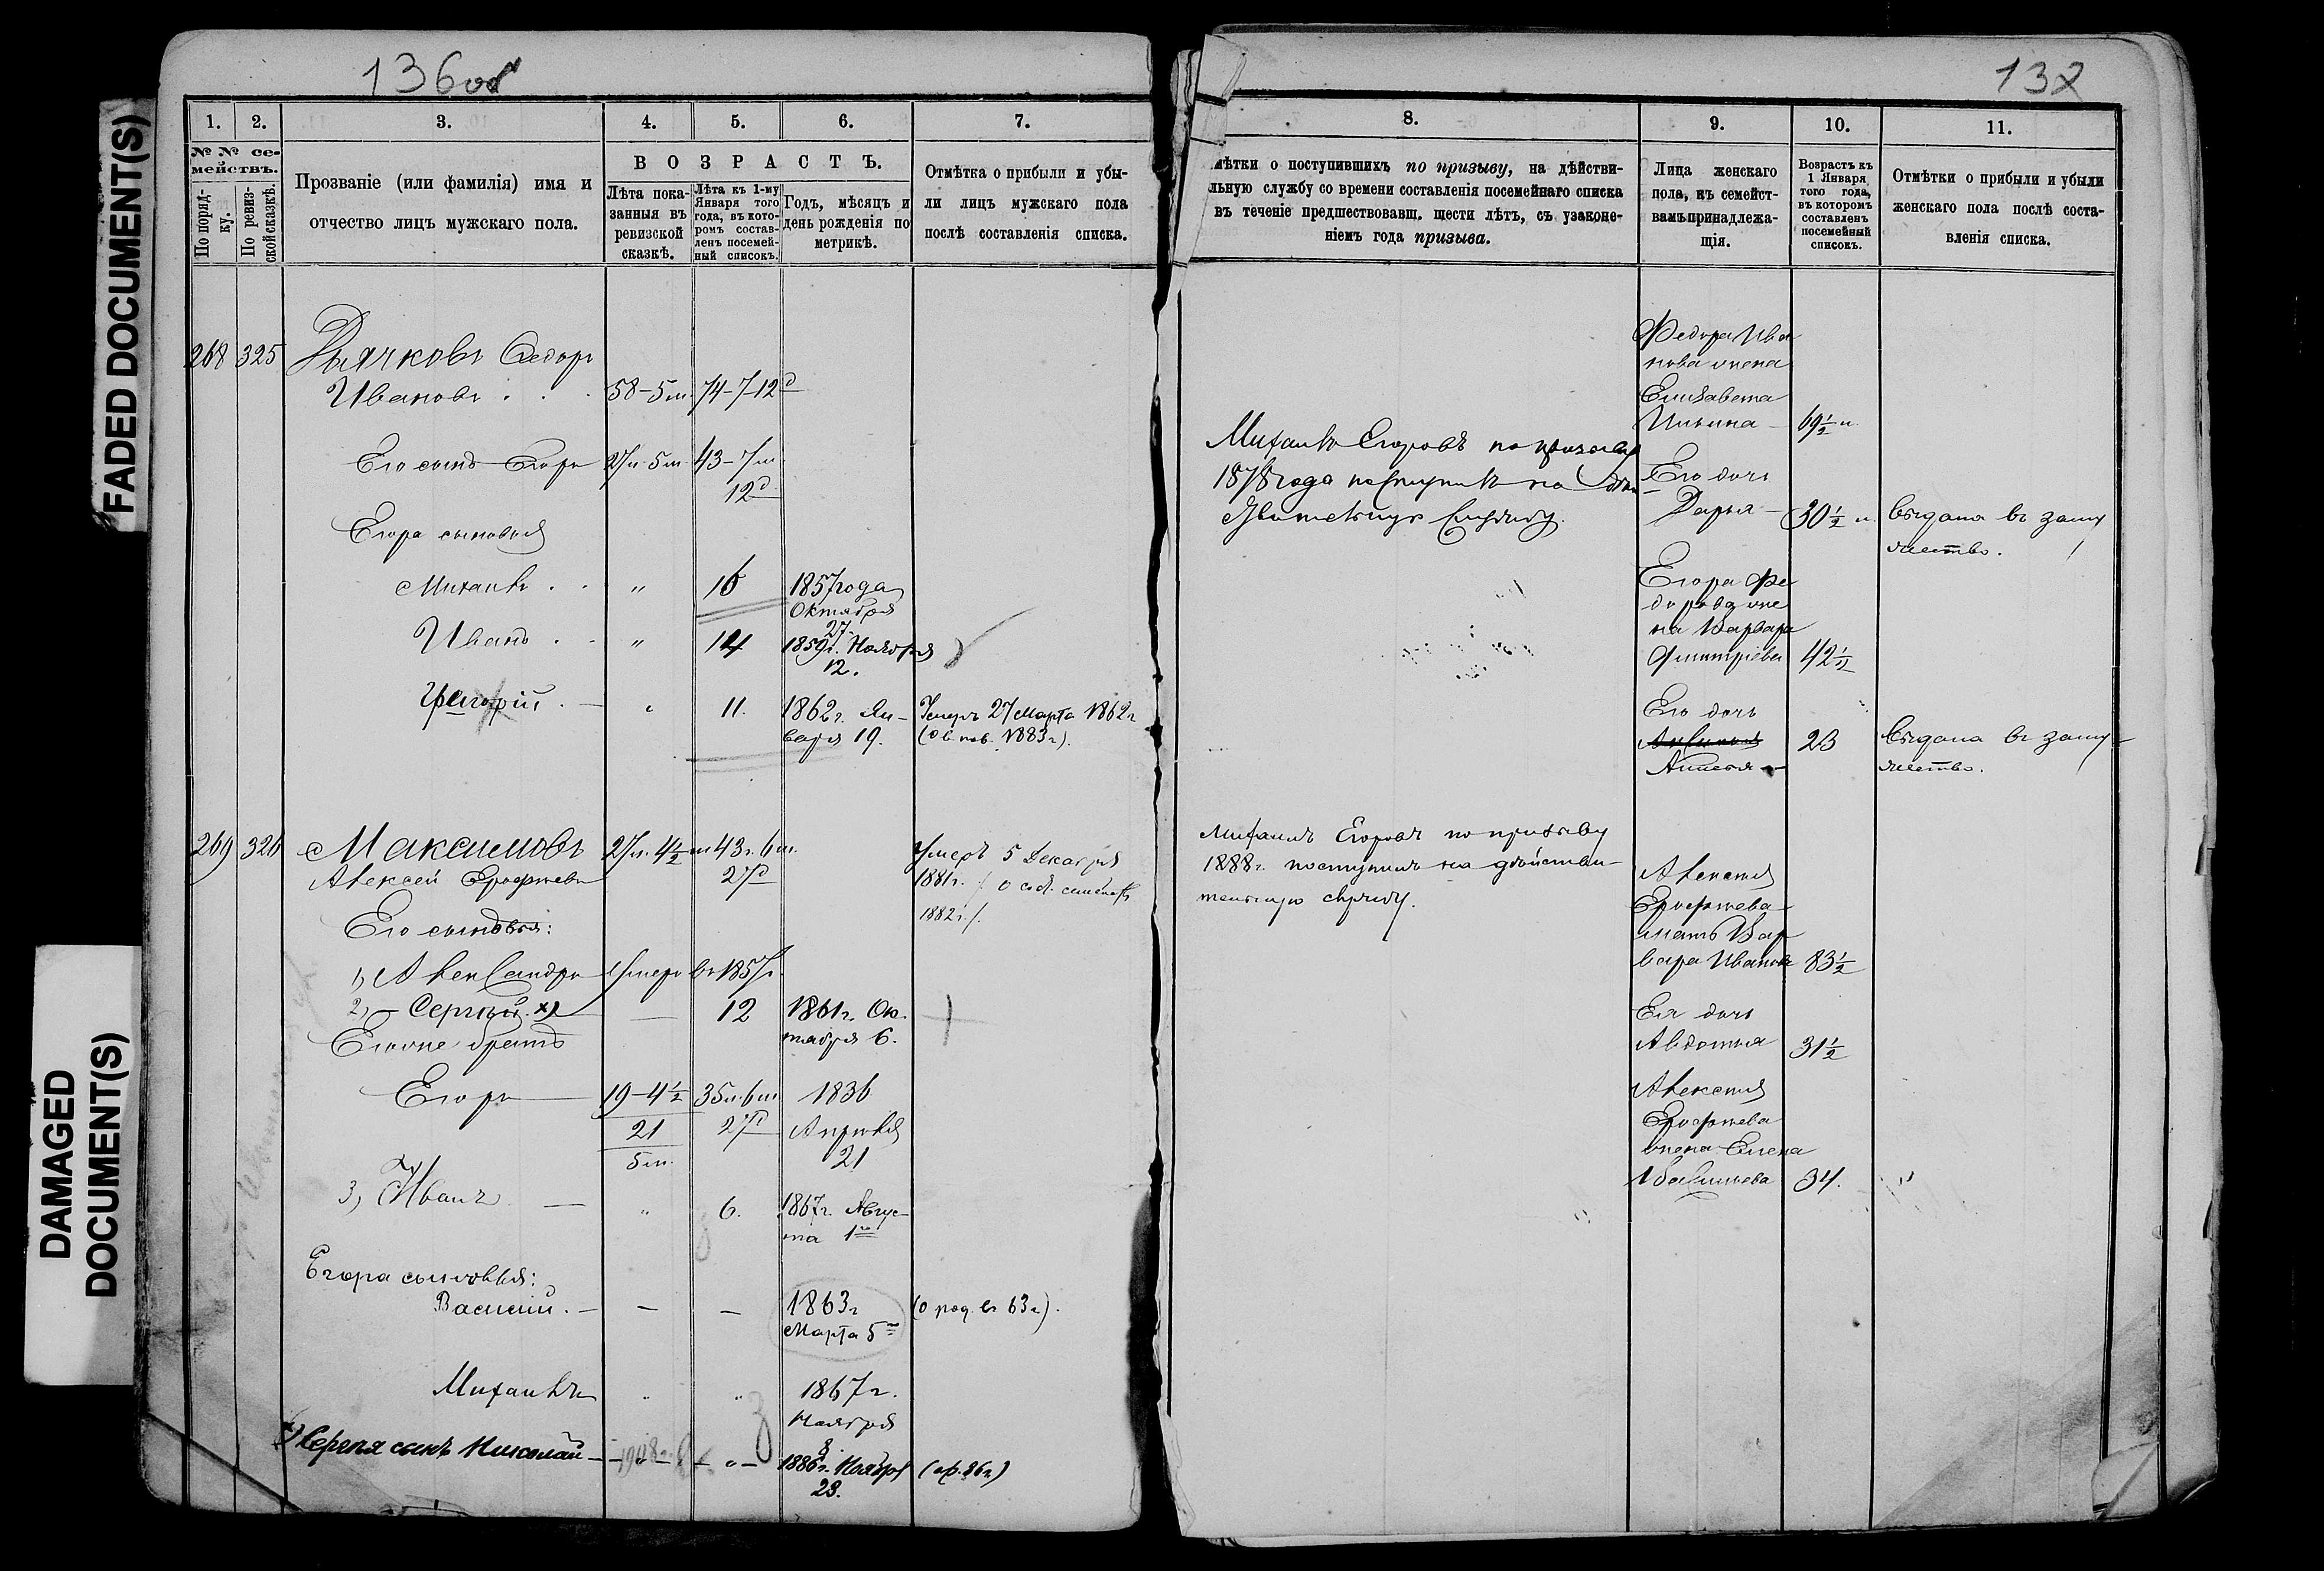 FADED DOCUMENT(S)
DAMAGED
DOCUMENT(S)
136об
1.
2.
3.
4.
5.
6.
7.
№ № се-
мействъ.
По поряд-
ку.
По ревиз-
ской сказкѣ.
Прозваніе (или фамилія) имя и
отчество лицъ мужскаго пола.
В О З Р А С Т Ъ.
Лѣта пока-
занныя въ
ревизской
сказкѣ.
Лѣта къ 1-му
Января того
года, въ кото-
ромъ состав-
ленъ посемей-
ный списокъ.
Годъ, мѣсяцъ и
день рожденія по
метрикѣ.
Отмѣтка о прибыли и убы-
ли лицъ мужскаго пола
послѣ составленія списка.
268 325 Дьячковъ Федоръ
Ивановъ . . . 58–5 м. 74–7–12 д
Его сынъ Егоръ 27 л. 5 м. 43–7 м.
12 д
Егора сыновья
Михаилъ . . „ 16 1857 года
Октября
27.
Иванъ . . „ 14 1859 г. Ноября
12.
Григорій . — „ 11. 1862 г. Ян-
варя 19.
Умеръ 27 Марта 1862 г
1883 г).
269 326 Максимовъ 27 л. 4½ м 43 г. 6 м.
Алексей Ерофеевъ 27 д
Умеръ 5 Декабря
1881 г.
1882 г.
Его сыновья:
1) Александръ умеръ въ 1857 г.
2) — Сергѣй. х) — 12 1861 г. Ок-
тября 6.
Его же братъ
Егоръ — 19–4½ 35 л. 6 м. 1836
21 27 д Апрѣля
5 м. 21
3) Иванъ — „ 6. 1867 г. Авгус-
та 1го
Егора сыновья:
Василій. — — — 1863 г (о род. въ 63 г).
Марта 5го
Михаилъ „ „ 1867 г.
Ноября
8.
х) Сергѣя сынъ Николай — — „ — 1886 г. Ноября
23.
132
8.
9.
10.
11.
мѣтки о поступившихъ по призыву, на дѣйстви-
льную службу со времени составленія посемейнаго списка
въ теченіе предшествовавш. шести лѣтъ, съ узаконе-
ніемъ года призыва.
Лица женскаго
пола, къ семейст-
вамъ принадлежа-
щія.
Возрастъ къ
1 Января
того года,
въ которомъ
составленъ
посемейный
списокъ.
Отмѣтки о прибыли и убыли
женскаго пола послѣ соста-
вленія списка.
Михаилъ Егоровъ по призыву
1878 года поступилъ на дѣй
ствительную службу.
Федора Ива
нова жена
Елизавета
Ильина — 69½ л.
Его дочь
Дарья — 30½ л. Выдана въ заму
жество.
Егора Фе
дорова же
на Варвара
Дмитріева 42½
Его дочь
23 Выдана въ заму-
жество.
Михаилъ Егоровъ по призыву
1888 г. поступилъ на дѣйстви-
тельную службу.
Алексѣя
Ерофеева
мать Вар
вара Иванова 83½
Ея дочь
Авдотья 31½
Алексѣя
Ерофеева
жена Елена
Васильева 34.